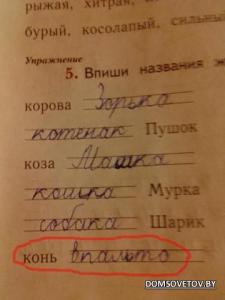 рыжая, хитрая,
бурый, косолапый, сильны
Упражнение
5. Впиши названия ж
корова Зорька
котенак Пушок
коза Машка
кошка Мурка
собака Шарик
конь впальто
DOMSOVETOV.BY